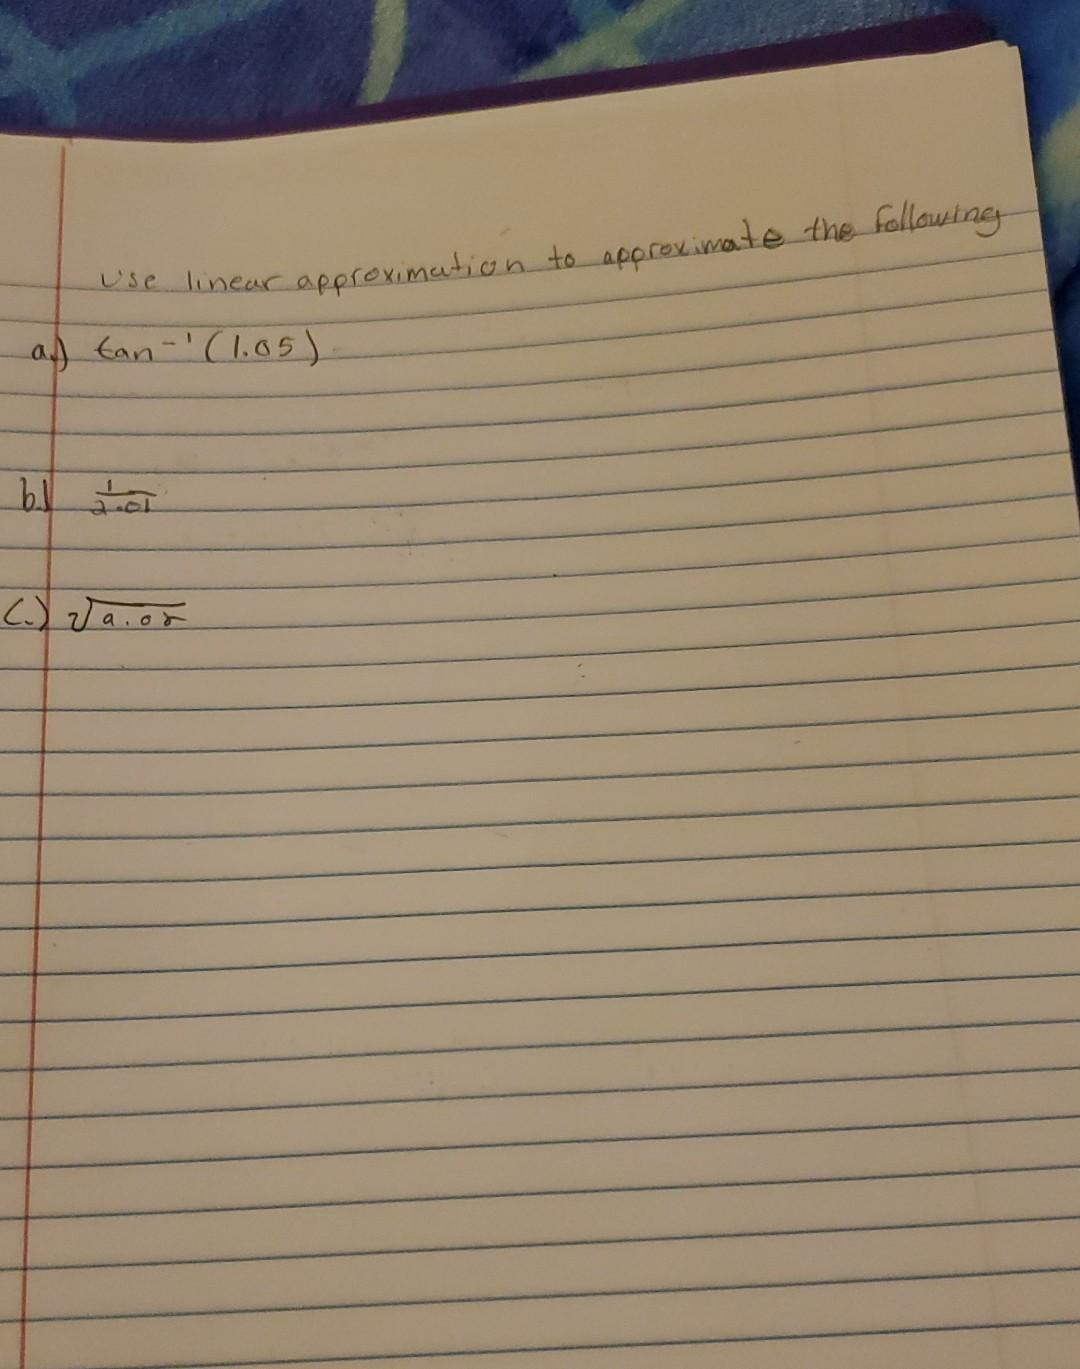 Use linear approximation to approximate the following
a.) tan⁻¹(1.05)
b.) 1/2.01
c.)